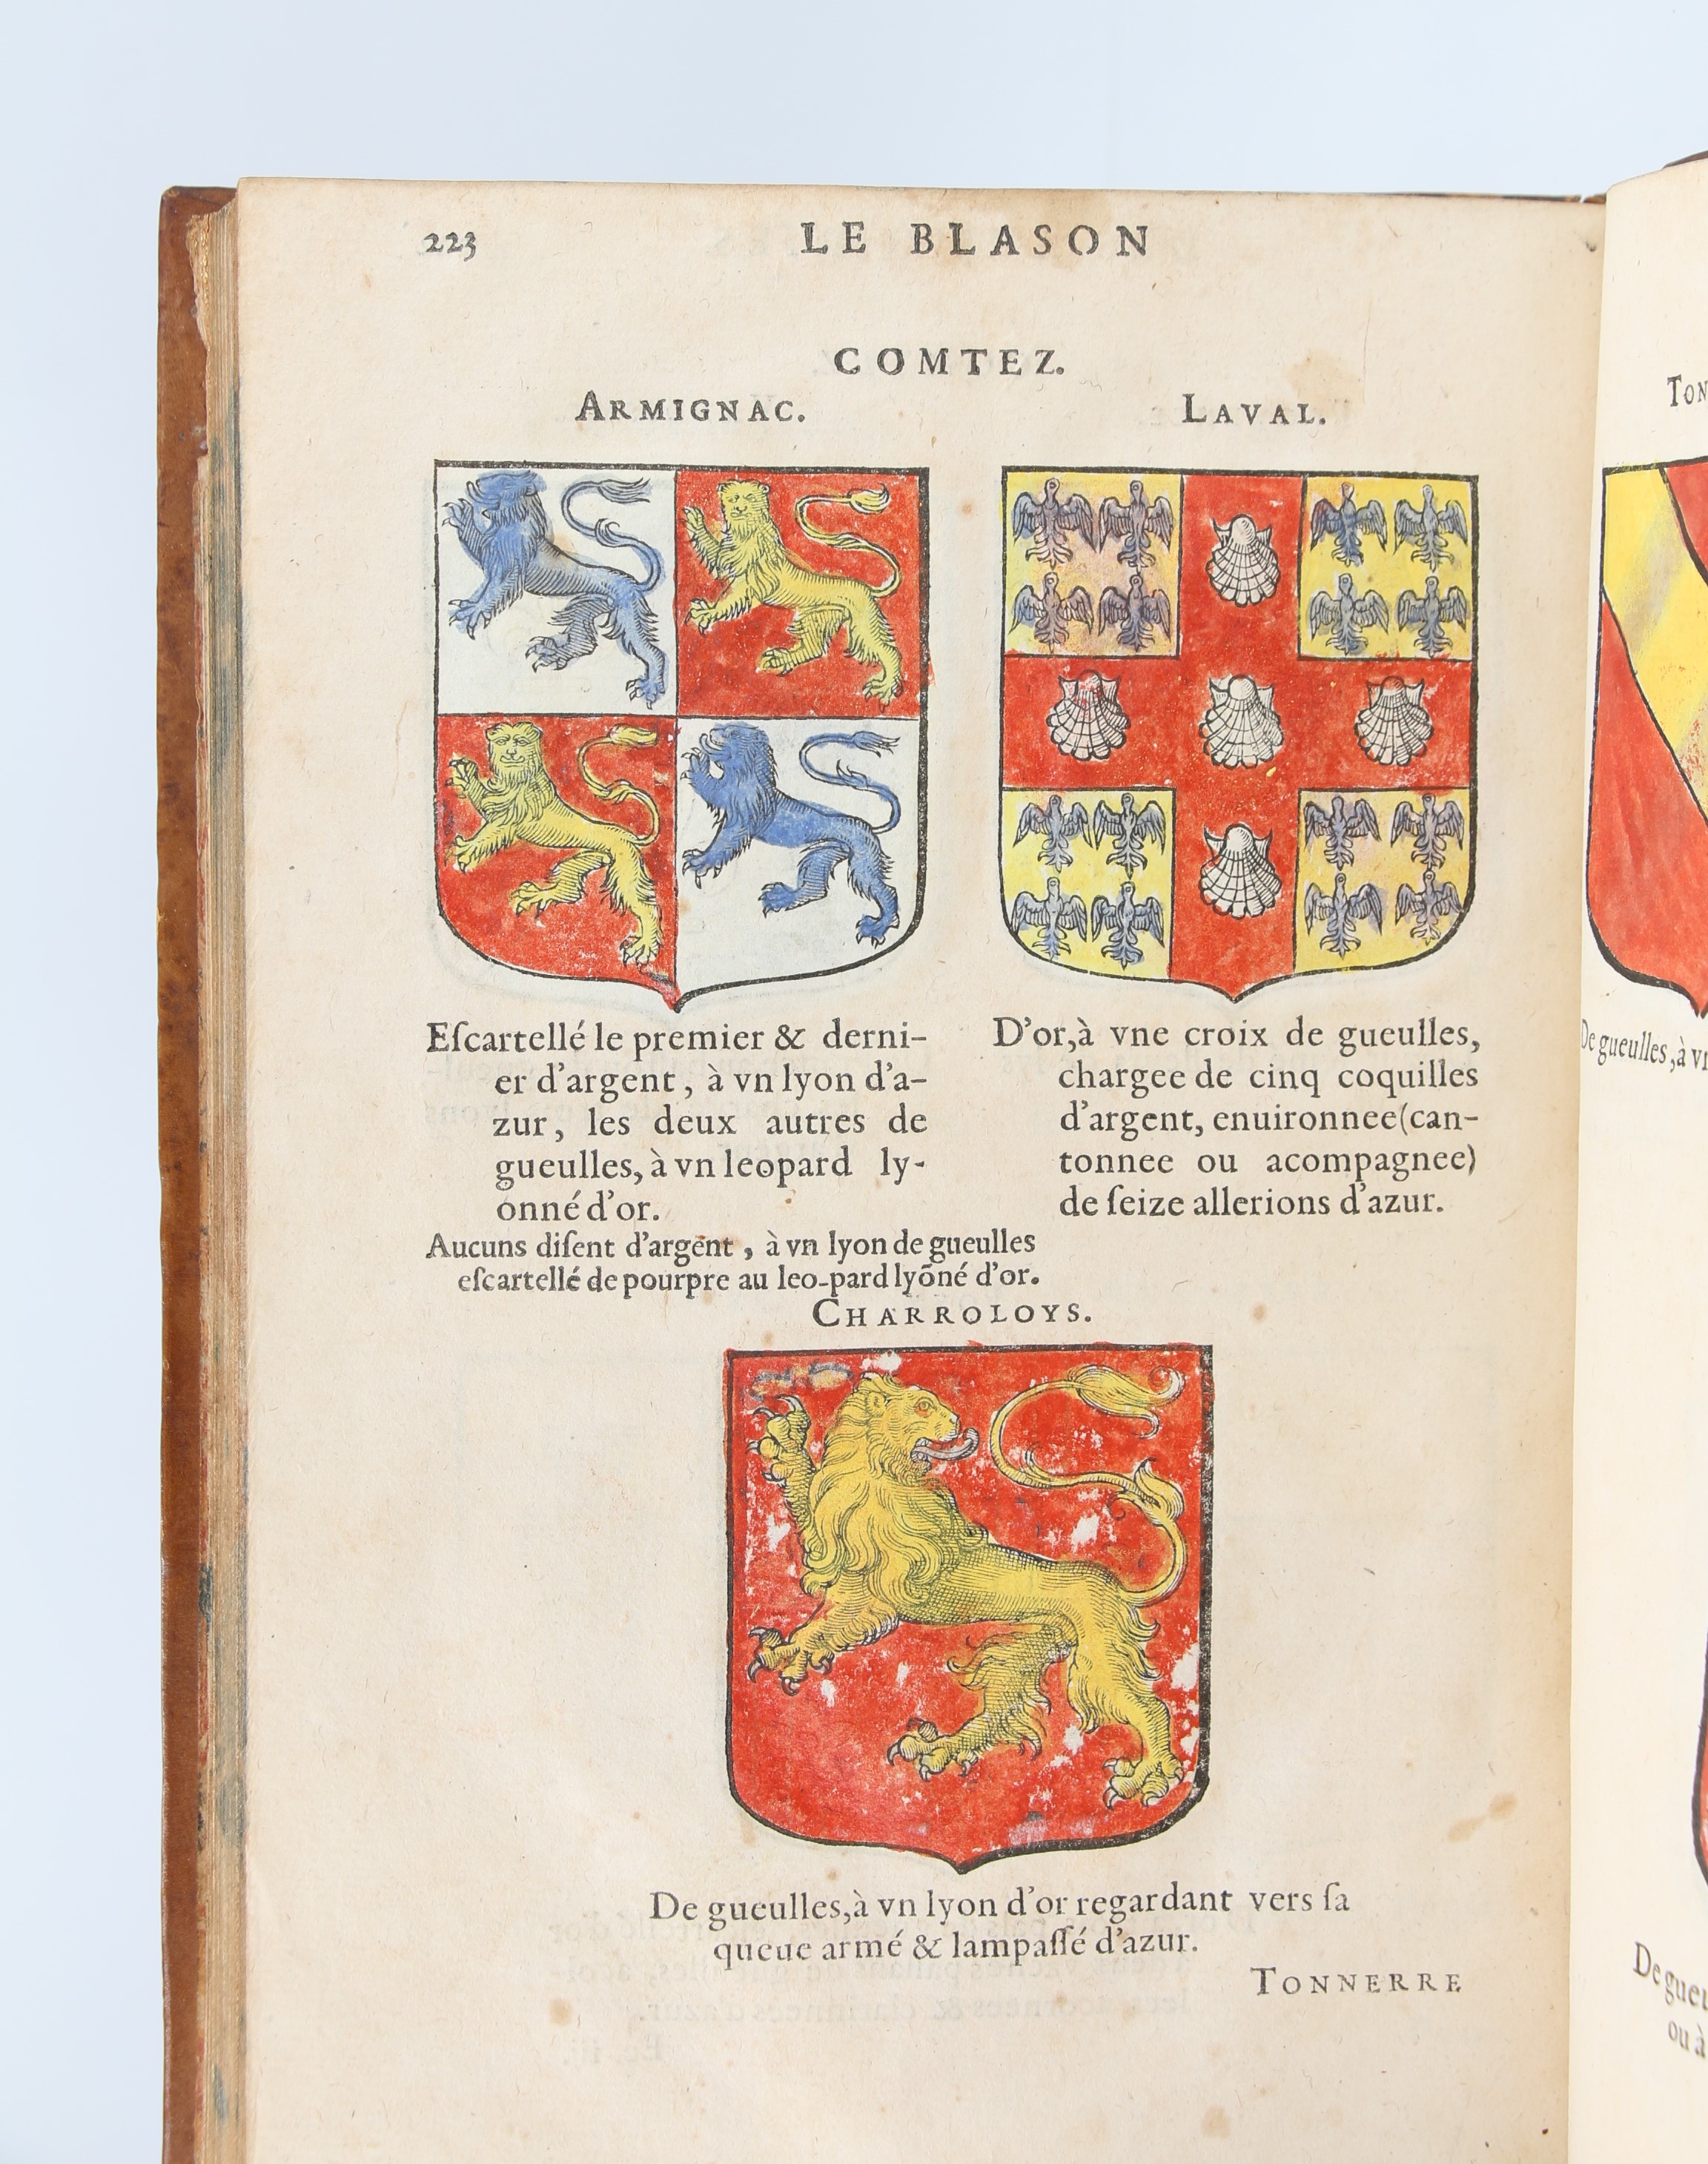 223 LE BLASON
COMTEZ.
ARMIGNAC.
Eſcartellé le premier & derni-
er d'argent, à vn lyon d'a-
zur, les deux autres de
gueulles, à vn leopard ly-
onné d'or.
Aucuns diſent d'argent, à vn lyon de gueulles
eſcartellé de pourpre au leo-pard lyõné d'or.
LAVAL.
D'or, à vne croix de gueulles,
chargee de cinq coquilles
d'argent, enuironnee (can-
tonnee ou acompagnee)
de ſeize allerions d'azur.
CHARROLOYS.
De gueulles, à vn lyon d'or regardant vers ſa
queue armé & lampaſſé d'azur.
TONNERRE
TON
De gueulles, à vn
De gueu
ou à